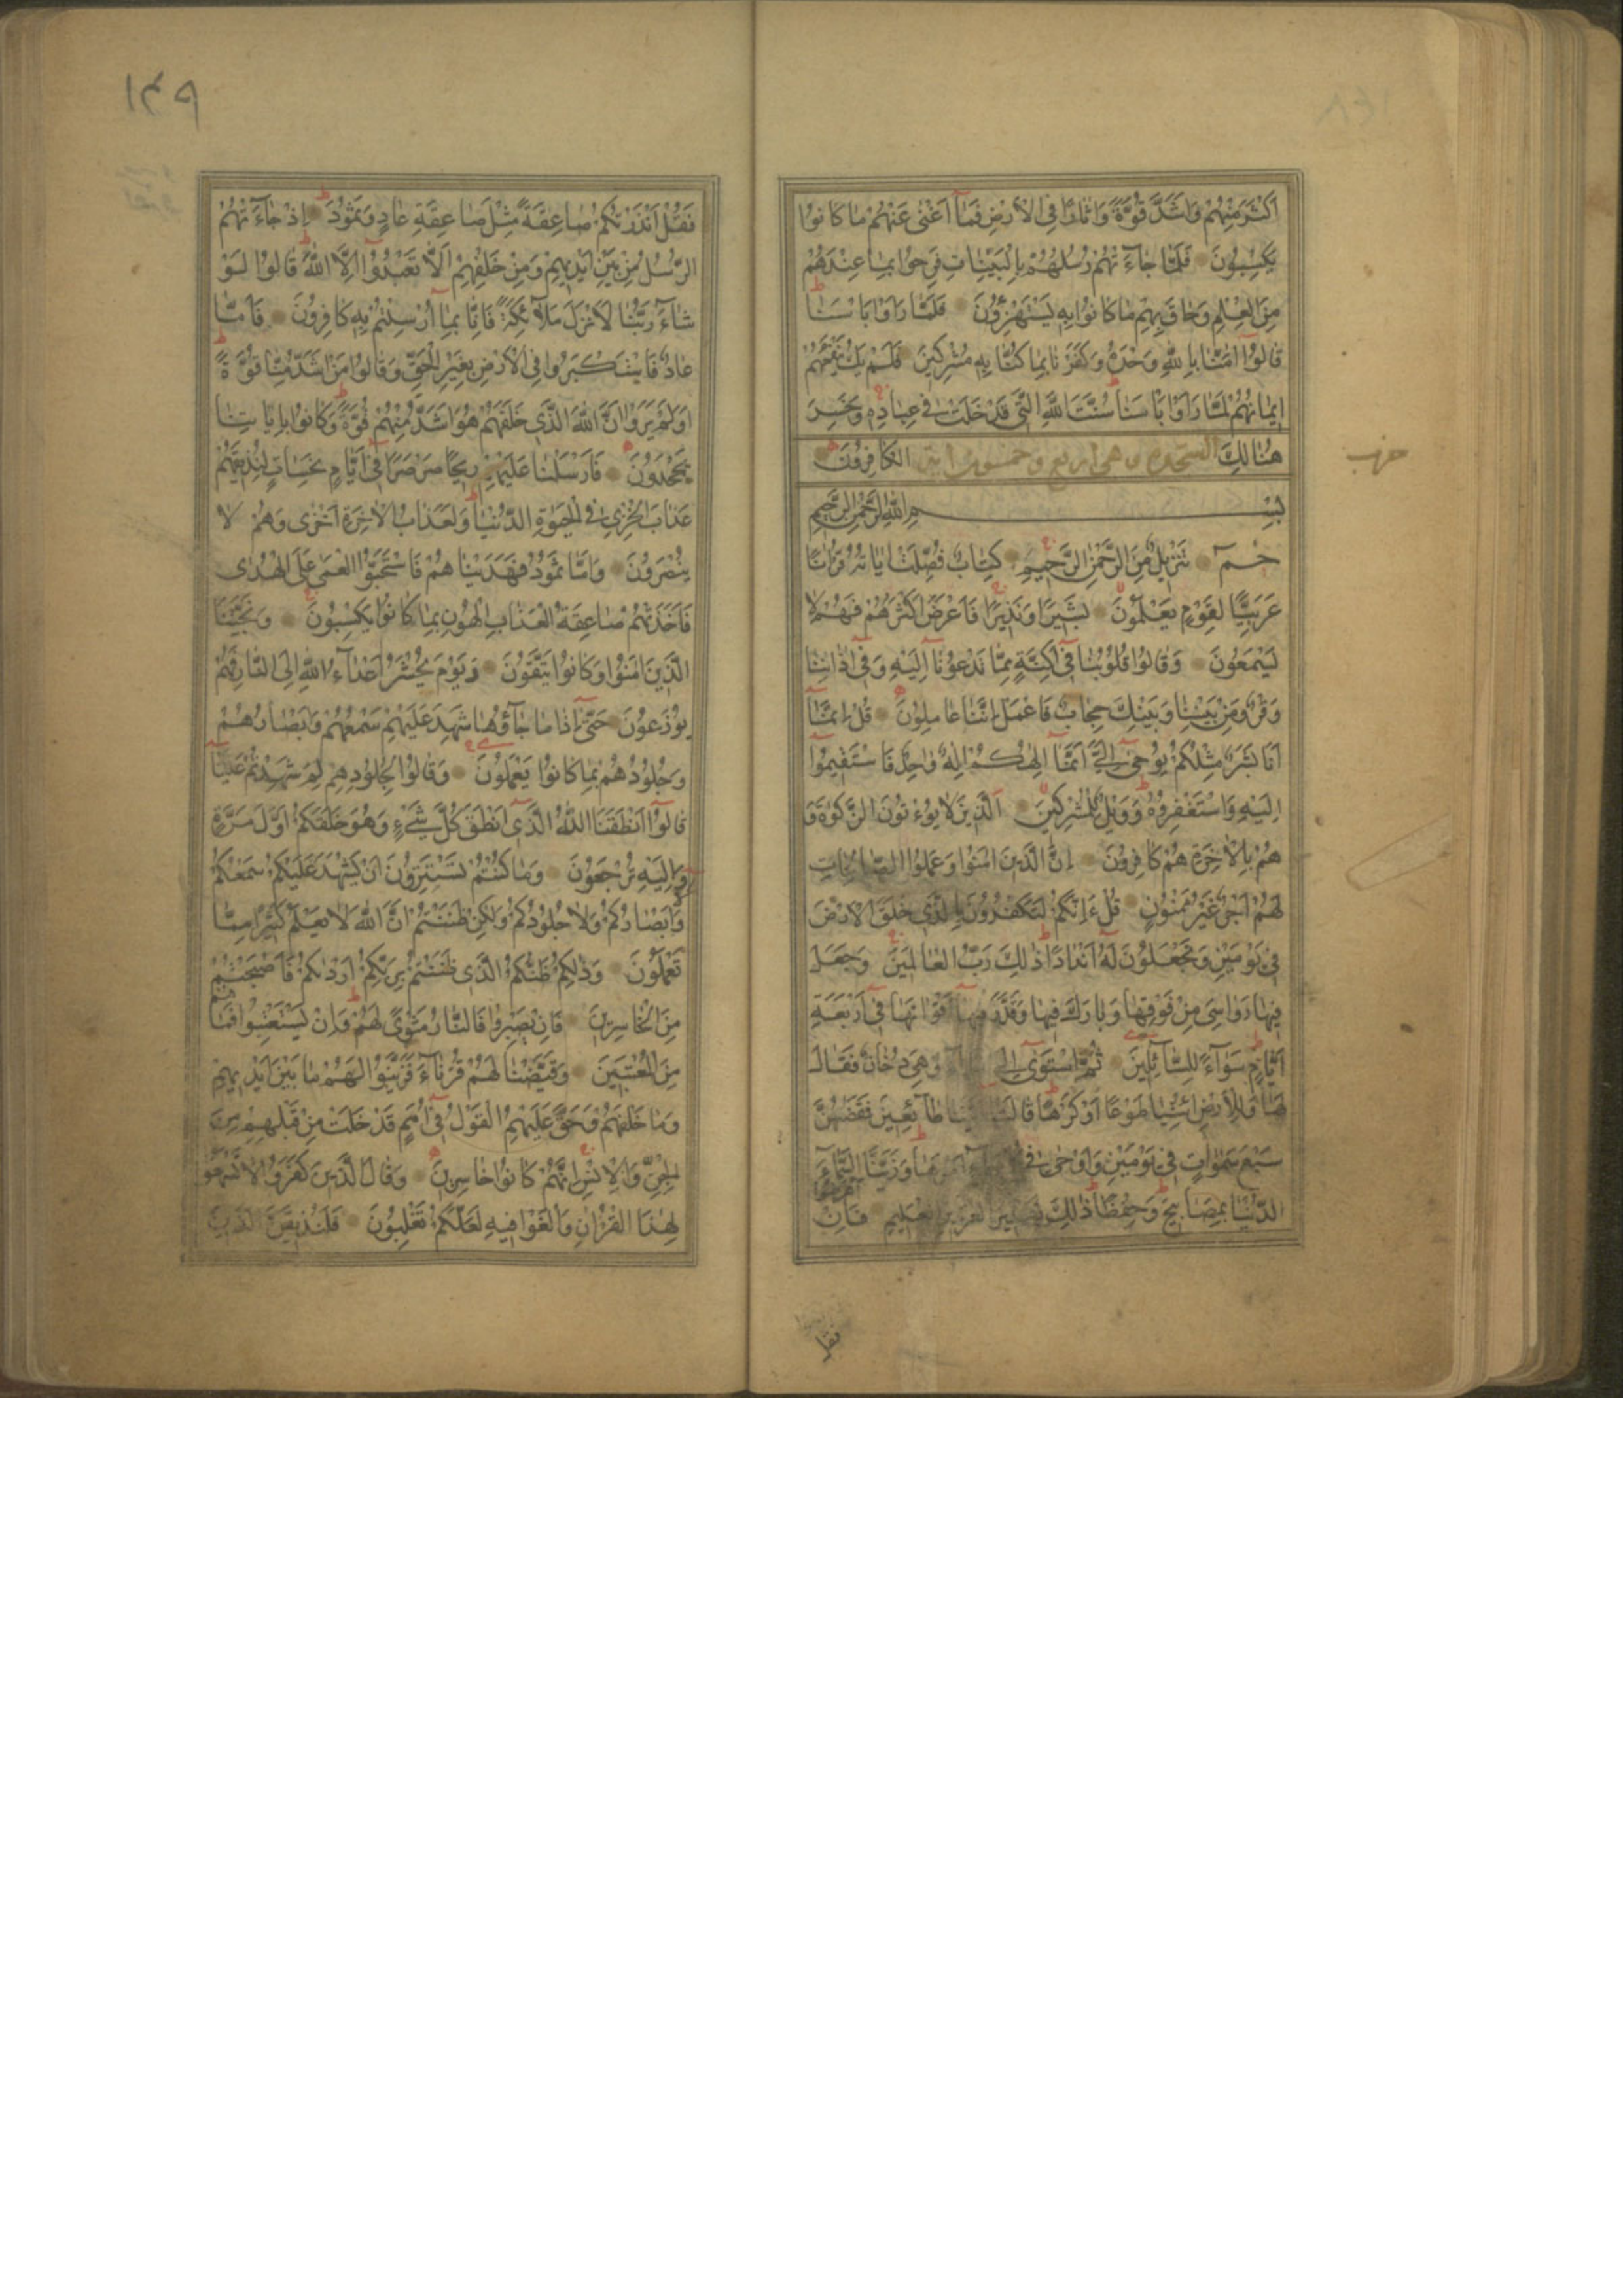 اَكْثَرَ مِنْهُمْ وَاَشَدَّ قُوَّةً وَاٰثَارًا فِى الْاَرْضِ فَمَآ اَغْنٰى عَنْهُمْ مَا كَانُوا
يَكْسِبُونَ فَلَمَّا جَآءَتْهُمْ رُسُلُهُمْ بِالْبَيِّنَاتِ فَرِحُوا بِمَا عِنْدَهُمْ
مِنَ الْعِلْمِ وَحَاقَ بِهِمْ مَا كَانُوا بِهِ يَسْتَهْزِؤُنَ فَلَمَّا رَاَوْا بَاْسَنَا
قَالُوٓا اٰمَنَّا بِاللّٰهِ وَحْدَهُ وَكَفَرْنَا بِمَا كُنَّا بِهِ مُشْرِكِينَ فَلَمْ يَكُ يَنْفَعُهُمْ
اِيمَانُهُمْ لَمَّا رَاَوْا بَاْسَنَا سُنَّتَ اللّٰهِ الَّتِى قَدْ خَلَتْ فِى عِبَادِهِ وَخَسِرَ
هُنَالِكَ الْكَافِرُونَ
بِسْمِ اللّٰهِ الرَّحْمٰنِ الرَّحِيمِ
حٰمٓ تَنْزِيلٌ مِنَ الرَّحْمٰنِ الرَّحِيمِ كِتَابٌ فُصِّلَتْ اٰيَاتُهُ قُرْاٰنًا
عَرَبِيًّا لِقَوْمٍ يَعْلَمُونَ بَشِيرًا وَنَذِيرًا فَاَعْرَضَ اَكْثَرُهُمْ فَهُمْ لَا
يَسْمَعُونَ وَقَالُوا قُلُوبُنَا فِىٓ اَكِنَّةٍ مِمَّا تَدْعُونَآ اِلَيْهِ وَفِىٓ اٰذَانِنَا
وَقْرٌ وَمِنْ بَيْنِنَا وَبَيْنِكَ حِجَابٌ فَاعْمَلْ اِنَّنَا عَامِلُونَ قُلْ اِنَّمَآ
اَنَا بَشَرٌ مِثْلُكُمْ يُوحٰىٓ اِلَىَّ اَنَّمَآ اِلٰهُكُمْ اِلٰهٌ وَاحِدٌ فَاسْتَقِيمُوٓا
اِلَيْهِ وَاسْتَغْفِرُوهُ وَوَيْلٌ لِلْمُشْرِكِينَ اَلَّذِينَ لَا يُؤْتُونَ الزَّكٰوةَ وَ
هُمْ بِالْاٰخِرَةِ هُمْ كَافِرُونَ اِنَّ الَّذِينَ اٰمَنُوا وَعَمِلُوا الصَّالِحَاتِ
لَهُمْ اَجْرٌ غَيْرُ مَمْنُونٍ قُلْ ءَاِنَّكُمْ لَتَكْفُرُونَ بِالَّذِى خَلَقَ الْاَرْضَ
فِى يَوْمَيْنِ وَتَجْعَلُونَ لَهُٓ اَنْدَادًا ذٰلِكَ رَبُّ الْعَالَمِينَ وَجَعَلَ
فِيهَا رَوَاسِىَ مِنْ فَوْقِهَا وَبَارَكَ فِيهَا وَقَدَّرَ فِيهَآ اَقْوَاتَهَا فِىٓ اَرْبَعَةِ
اَيَّامٍ سَوَآءً لِلسَّآئِلِينَ ثُمَّ اسْتَوٰىٓ اِلَى وَهِىَ دُخَانٌ فَقَالَ
لَهَا وَلِلْاَرْضِ ائْتِيَا طَوْعًا اَوْ كَرْهًا قَالَتَآ اَتَيْنَا طَآئِعِينَ فَقَضٰيهُنَّ
سَبْعَ سَمٰوَاتٍ فِى يَوْمَيْنِ وَاَوْحٰى فِى اَمْرَهَا وَزَيَّنَّا السَّمَآءَ
الدُّنْيَا بِمَصَابِيحَ وَحِفْظًا ذٰلِكَ تَقْدِيرُ الْعَزِيزِ الْعَلِيمِ فَاِنْ اَعْرَضُوا
فقل
١٤٩
فَقُلْ اَنْذَرْتُكُمْ صَاعِقَةً مِثْلَ صَاعِقَةِ عَادٍ وَثَمُودَ اِذْ جَآءَتْهُمُ
الرُّسُلُ مِنْ بَيْنِ اَيْدِيهِمْ وَمِنْ خَلْفِهِمْ اَلَّا تَعْبُدُوٓا اِلَّا اللّٰهَ قَالُوا لَوْ
شَآءَ رَبُّنَا لَاَنْزَلَ مَلٰٓئِكَةً فَاِنَّا بِمَآ اُرْسِلْتُمْ بِهِ كَافِرُونَ فَاَمَّا
عَادٌ فَاسْتَكْبَرُوا فِى الْاَرْضِ بِغَيْرِ الْحَقِّ وَقَالُوا مَنْ اَشَدُّ مِنَّا قُوَّةً
اَوَلَمْ يَرَوْا اَنَّ اللّٰهَ الَّذِى خَلَقَهُمْ هُوَ اَشَدُّ مِنْهُمْ قُوَّةً وَكَانُوا بِاٰيَاتِنَا
يَجْحَدُونَ فَاَرْسَلْنَا عَلَيْهِمْ رِيحًا صَرْصَرًا فِىٓ اَيَّامٍ نَحِسَاتٍ لِنُذِيقَهُمْ
عَذَابَ الْخِزْىِ فِى الْحَيٰوةِ الدُّنْيَا وَلَعَذَابُ الْاٰخِرَةِ اَخْزٰى وَهُمْ لَا
يُنْصَرُونَ وَاَمَّا ثَمُودُ فَهَدَيْنَاهُمْ فَاسْتَحَبُّوا الْعَمٰى عَلَى الْهُدٰى
فَاَخَذَتْهُمْ صَاعِقَةُ الْعَذَابِ الْهُونِ بِمَا كَانُوا يَكْسِبُونَ وَنَجَّيْنَا
الَّذِينَ اٰمَنُوا وَكَانُوا يَتَّقُونَ وَيَوْمَ يُحْشَرُ اَعْدَآءُ اللّٰهِ اِلَى النَّارِ فَهُمْ
يُوزَعُونَ حَتّٰىٓ اِذَا مَا جَآؤُهَا شَهِدَ عَلَيْهِمْ سَمْعُهُمْ وَاَبْصَارُهُمْ
وَجُلُودُهُمْ بِمَا كَانُوا يَعْمَلُونَ وَقَالُوا لِجُلُودِهِمْ لِمَ شَهِدْتُمْ عَلَيْنَا
قَالُوٓا اَنْطَقَنَا اللّٰهُ الَّذِىٓ اَنْطَقَ كُلَّ شَىْءٍ وَهُوَ خَلَقَكُمْ اَوَّلَ مَرَّةٍ
وَاِلَيْهِ تُرْجَعُونَ وَمَا كُنْتُمْ تَسْتَتِرُونَ اَنْ يَشْهَدَ عَلَيْكُمْ سَمْعُكُمْ
وَلَآ اَبْصَارُكُمْ وَلَا جُلُودُكُمْ وَلٰكِنْ ظَنَنْتُمْ اَنَّ اللّٰهَ لَا يَعْلَمُ كَثِيرًا مِمَّا
تَعْمَلُونَ وَذٰلِكُمْ ظَنُّكُمُ الَّذِى ظَنَنْتُمْ بِرَبِّكُمْ اَرْدٰيكُمْ فَاَصْبَحْتُمْ
مِنَ الْخَاسِرِينَ فَاِنْ يَصْبِرُوا فَالنَّارُ مَثْوًى لَهُمْ وَاِنْ يَسْتَعْتِبُوا فَمَا هُمْ
مِنَ الْمُعْتَبِينَ وَقَيَّضْنَا لَهُمْ قُرَنَآءَ فَزَيَّنُوا لَهُمْ مَا بَيْنَ اَيْدِيهِمْ
وَمَا خَلْفَهُمْ وَحَقَّ عَلَيْهِمُ الْقَوْلُ فِىٓ اُمَمٍ قَدْ خَلَتْ مِنْ قَبْلِهِمْ مِنَ
الْجِنِّ وَالْاِنْسِ اِنَّهُمْ كَانُوا خَاسِرِينَ وَقَالَ الَّذِينَ كَفَرُوا لَا تَسْمَعُوا
لِهٰذَا الْقُرْاٰنِ وَالْغَوْا فِيهِ لَعَلَّكُمْ تَغْلِبُونَ فَلَنُذِيقَنَّ الَّذِينَ